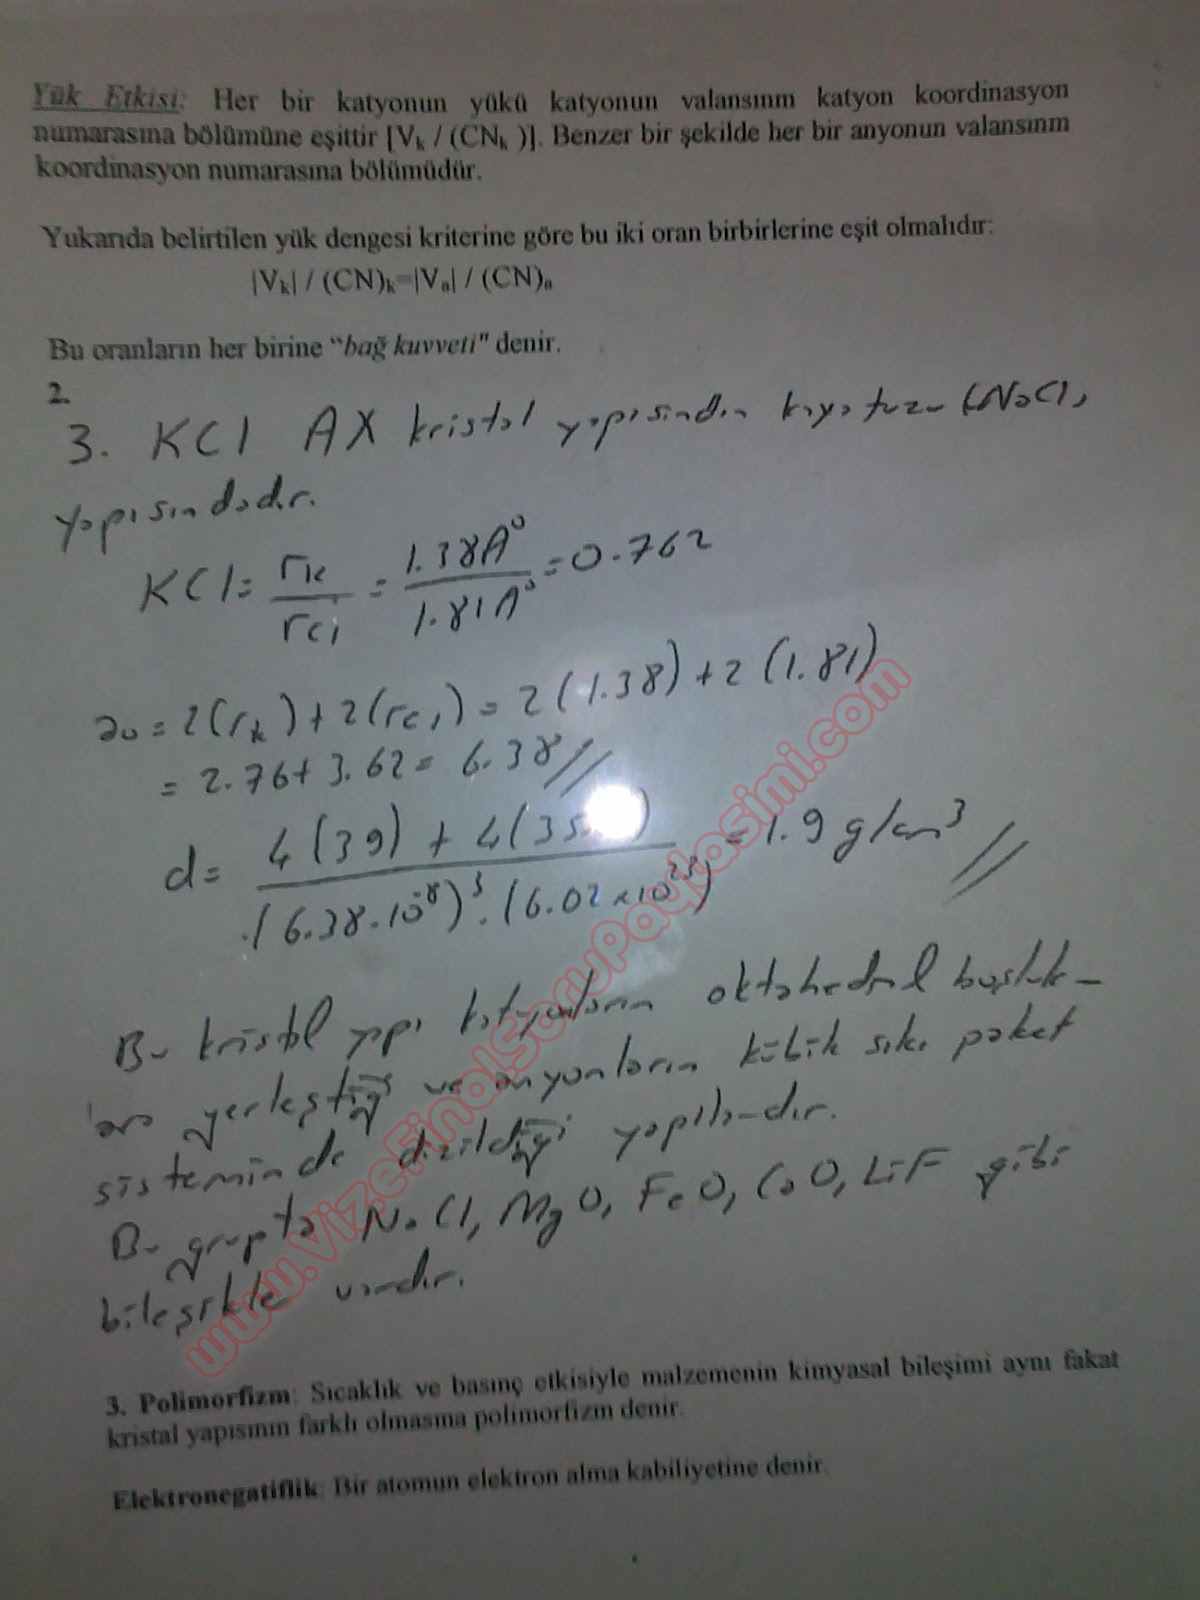 Yük Etkisi: Her bir katyonun yükü katyonun valansının katyon koordinasyon
numarasına bölümüne eşittir [Vk / (CNk )]. Benzer bir şekilde her bir anyonun valansının
koordinasyon numarasına bölümüdür.
Yukarıda belirtilen yük dengesi kriterine göre bu iki oran birbirlerine eşit olmalıdır:
|Vk| / (CN)k=|Va| / (CN)a
Bu oranların her birine “bağ kuvveti" denir.
2.
3. KCl AX kristal yapısından kaya tuzu (NaCl)
yapısındadır.
KCl = rk / rcl = 1.38A° / 1.81A° = 0.762
a0 = 2(rk) + 2(rcl) = 2(1.38) + 2(1.81)
= 2.76 + 3.62 = 6.38 //
d = 4(39) + 4(35 ) / (6.38.10^-8)^3 . (6.02x10^23) = 1.9 g/cm^3 //
Bu kristal yapı katyonların oktahedral boşluk-
lara yerleştiği ve anyonların kübik sıkı paket
sisteminde dizildiği yapılardır.
Bu grupta NaCl, MgO, FeO, CaO, LiF gibi
bileşikler vardır.
3. Polimorfizm: Sıcaklık ve basınç etkisiyle malzemenin kimyasal bileşimi aynı fakat
kristal yapısının farklı olmasına polimorfizm denir.
Elektronegatiflik: Bir atomun elektron alma kabiliyetine denir.
www.VizeFinalSoruPaylasimi.com